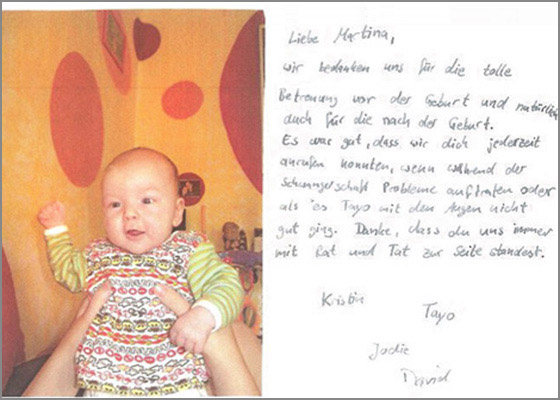 Liebe Martina,
wir bedanken uns für die tolle
Betreuung vor der Geburt und natürlich
auch für die nach der Geburt.
Es war gut, dass wir dich jederzeit
anrufen konnten, wenn während der
Schwangerschaft Probleme auftraten oder
als es Tayo mit den Augen nicht
gut ging. Danke, dass du uns immer
mit Rat und Tat zur Seite standest.
Kristin
Tayo
Jadie
David